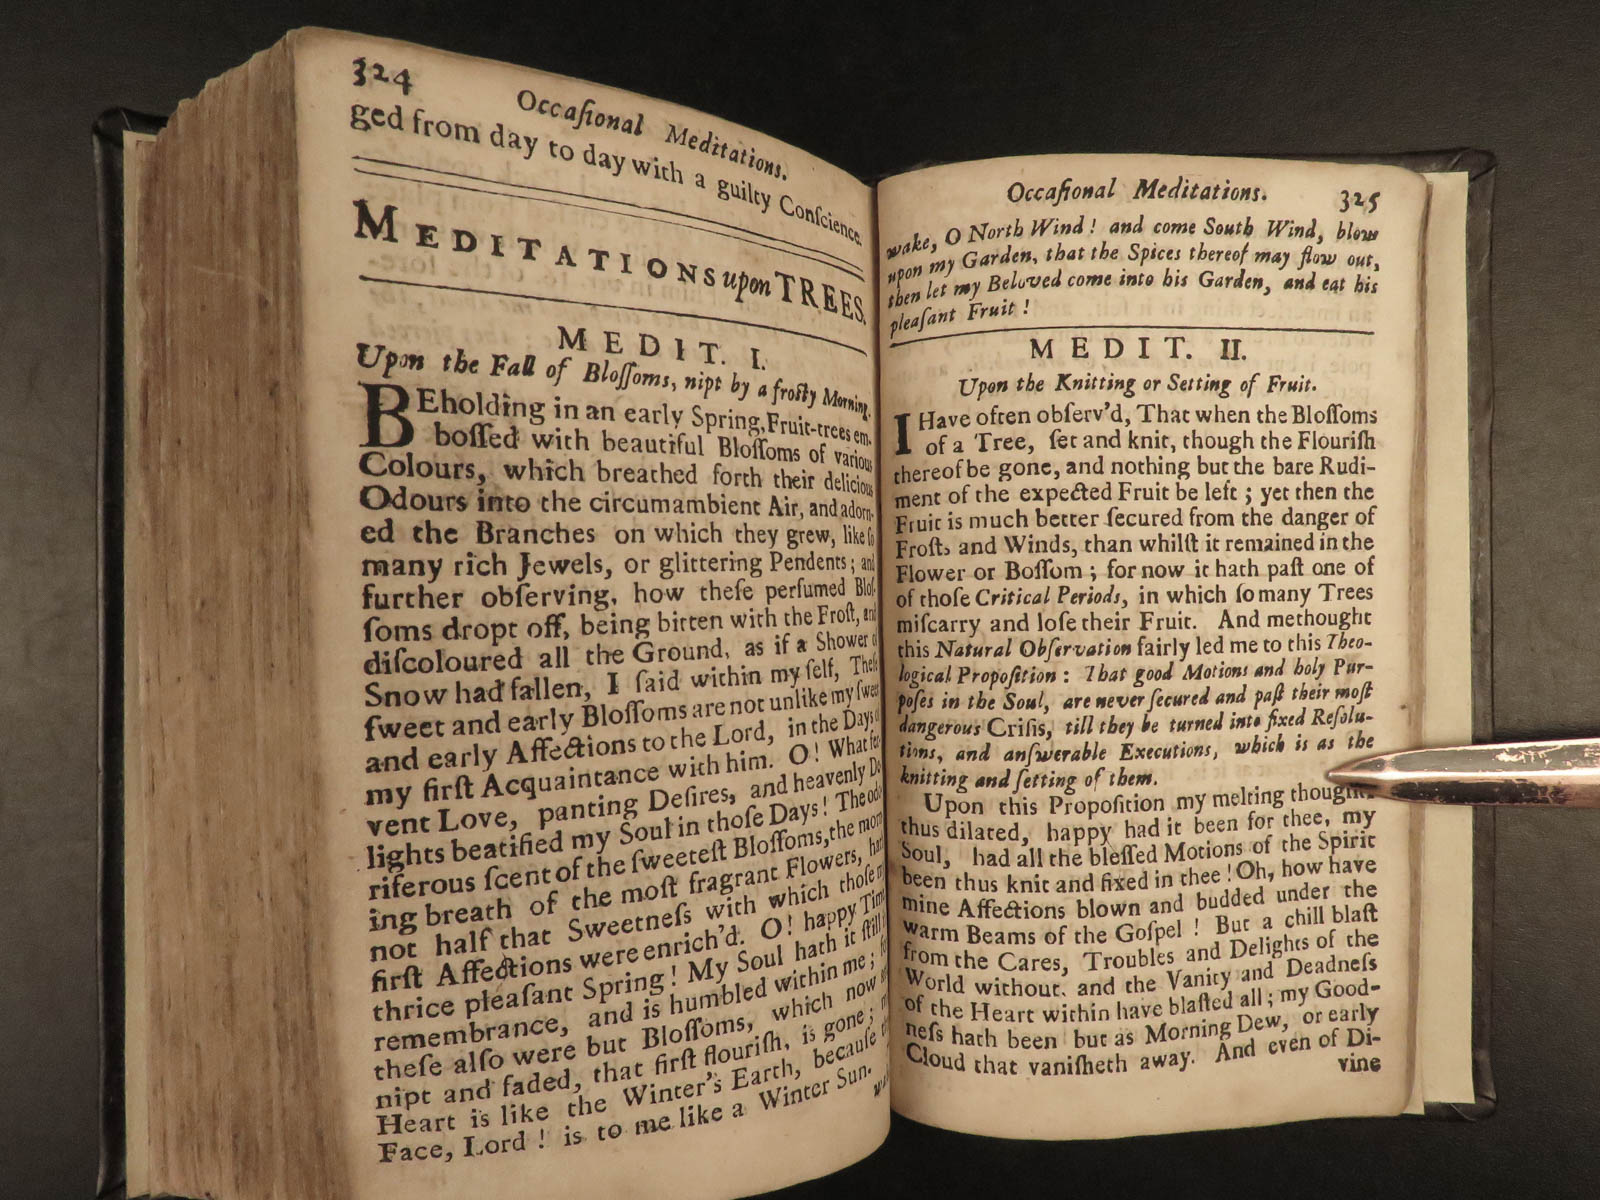 324
Occaſional Meditations.
ged from day to day with a guilty Conſcience.
MEDITATIONS upon TREES.
MEDIT. I.
Upon the Fall of Bloſſoms, nipt by a froſty Morning.
BEholding in an early Spring, Fruit-trees em-
boſſed with beautiful Bloſſoms of various
Colours, which breathed forth their delicious
Odours into the circumambient Air, and adorn-
ed the Branches on which they grew, like ſo
many rich Jewels, or glittering Pendents; and
further obſerving, how theſe perfumed Bloſ-
ſoms dropt off, being bitten with the Froſt, and
diſcoloured all the Ground, as if a Shower of
Snow had fallen, I ſaid within my ſelf, Theſe
ſweet and early Bloſſoms are not unlike my ſweet
and early Affections to the Lord, in the Days of
my firſt Acquaintance with him. O! What fer-
vent Love, panting Deſires, and heavenly De-
lights beatified my Soul in thoſe Days! The odo-
riferous ſcent of the ſweeteſt Bloſſoms, the morn-
ing breath of the moſt fragrant Flowers, have
not half that Sweetneſs with which thoſe my
firſt Affections were enrich'd. O! happy Time!
thrice pleaſant Spring! My Soul hath it ſtill
remembrance, and is humbled within me; for
theſe alſo were but Bloſſoms, which now are
nipt and faded, that firſt flouriſh, is gone; my
Heart is like the Winter's Earth, becauſe thy
Face, Lord! is to me like a Winter Sun.
Occaſional Meditations.
325
wake, O North Wind! and come South Wind, blow
upon my Garden, that the Spices thereof may flow out,
then let my Beloved come into his Garden, and eat his
pleaſant Fruit!
MEDIT. II.
Upon the Knitting or Setting of Fruit.
I Have often obſerv'd, That when the Bloſſoms
of a Tree, ſet and knit, though the Flouriſh
thereof be gone, and nothing but the bare Rudi-
ment of the expected Fruit be left; yet then the
Fruit is much better ſecured from the danger of
Froſts and Winds, than whilſt it remained in the
Flower or Boſſom; for now it hath paſt one of
of thoſe Critical Periods, in which ſo many Trees
miſcarry and loſe their Fruit. And methought
this Natural Obſervation fairly led me to this Theo-
logical Propoſition: That good Motions and holy Pur-
poſes in the Soul, are never ſecured and paſt their moſt
dangerous Criſis, till they be turned into fixed Reſolu-
tions, and anſwerable Executions, which is as the
knitting and ſetting of them.
Upon this Propoſition my melting thoughts
thus dilated, happy had it been for thee, my
Soul, had all the bleſſed Motions of the Spirit
been thus knit and fixed in thee! Oh, how have
mine Affections blown and budded under the
warm Beams of the Goſpel! But a chill blaſt
from the Cares, Troubles and Delights of the
World without, and the Vanity and Deadneſs
of the Heart within have blaſted all; my Good-
neſs hath been but as Morning Dew, or early
Cloud that vaniſheth away. And even of Di-
vine